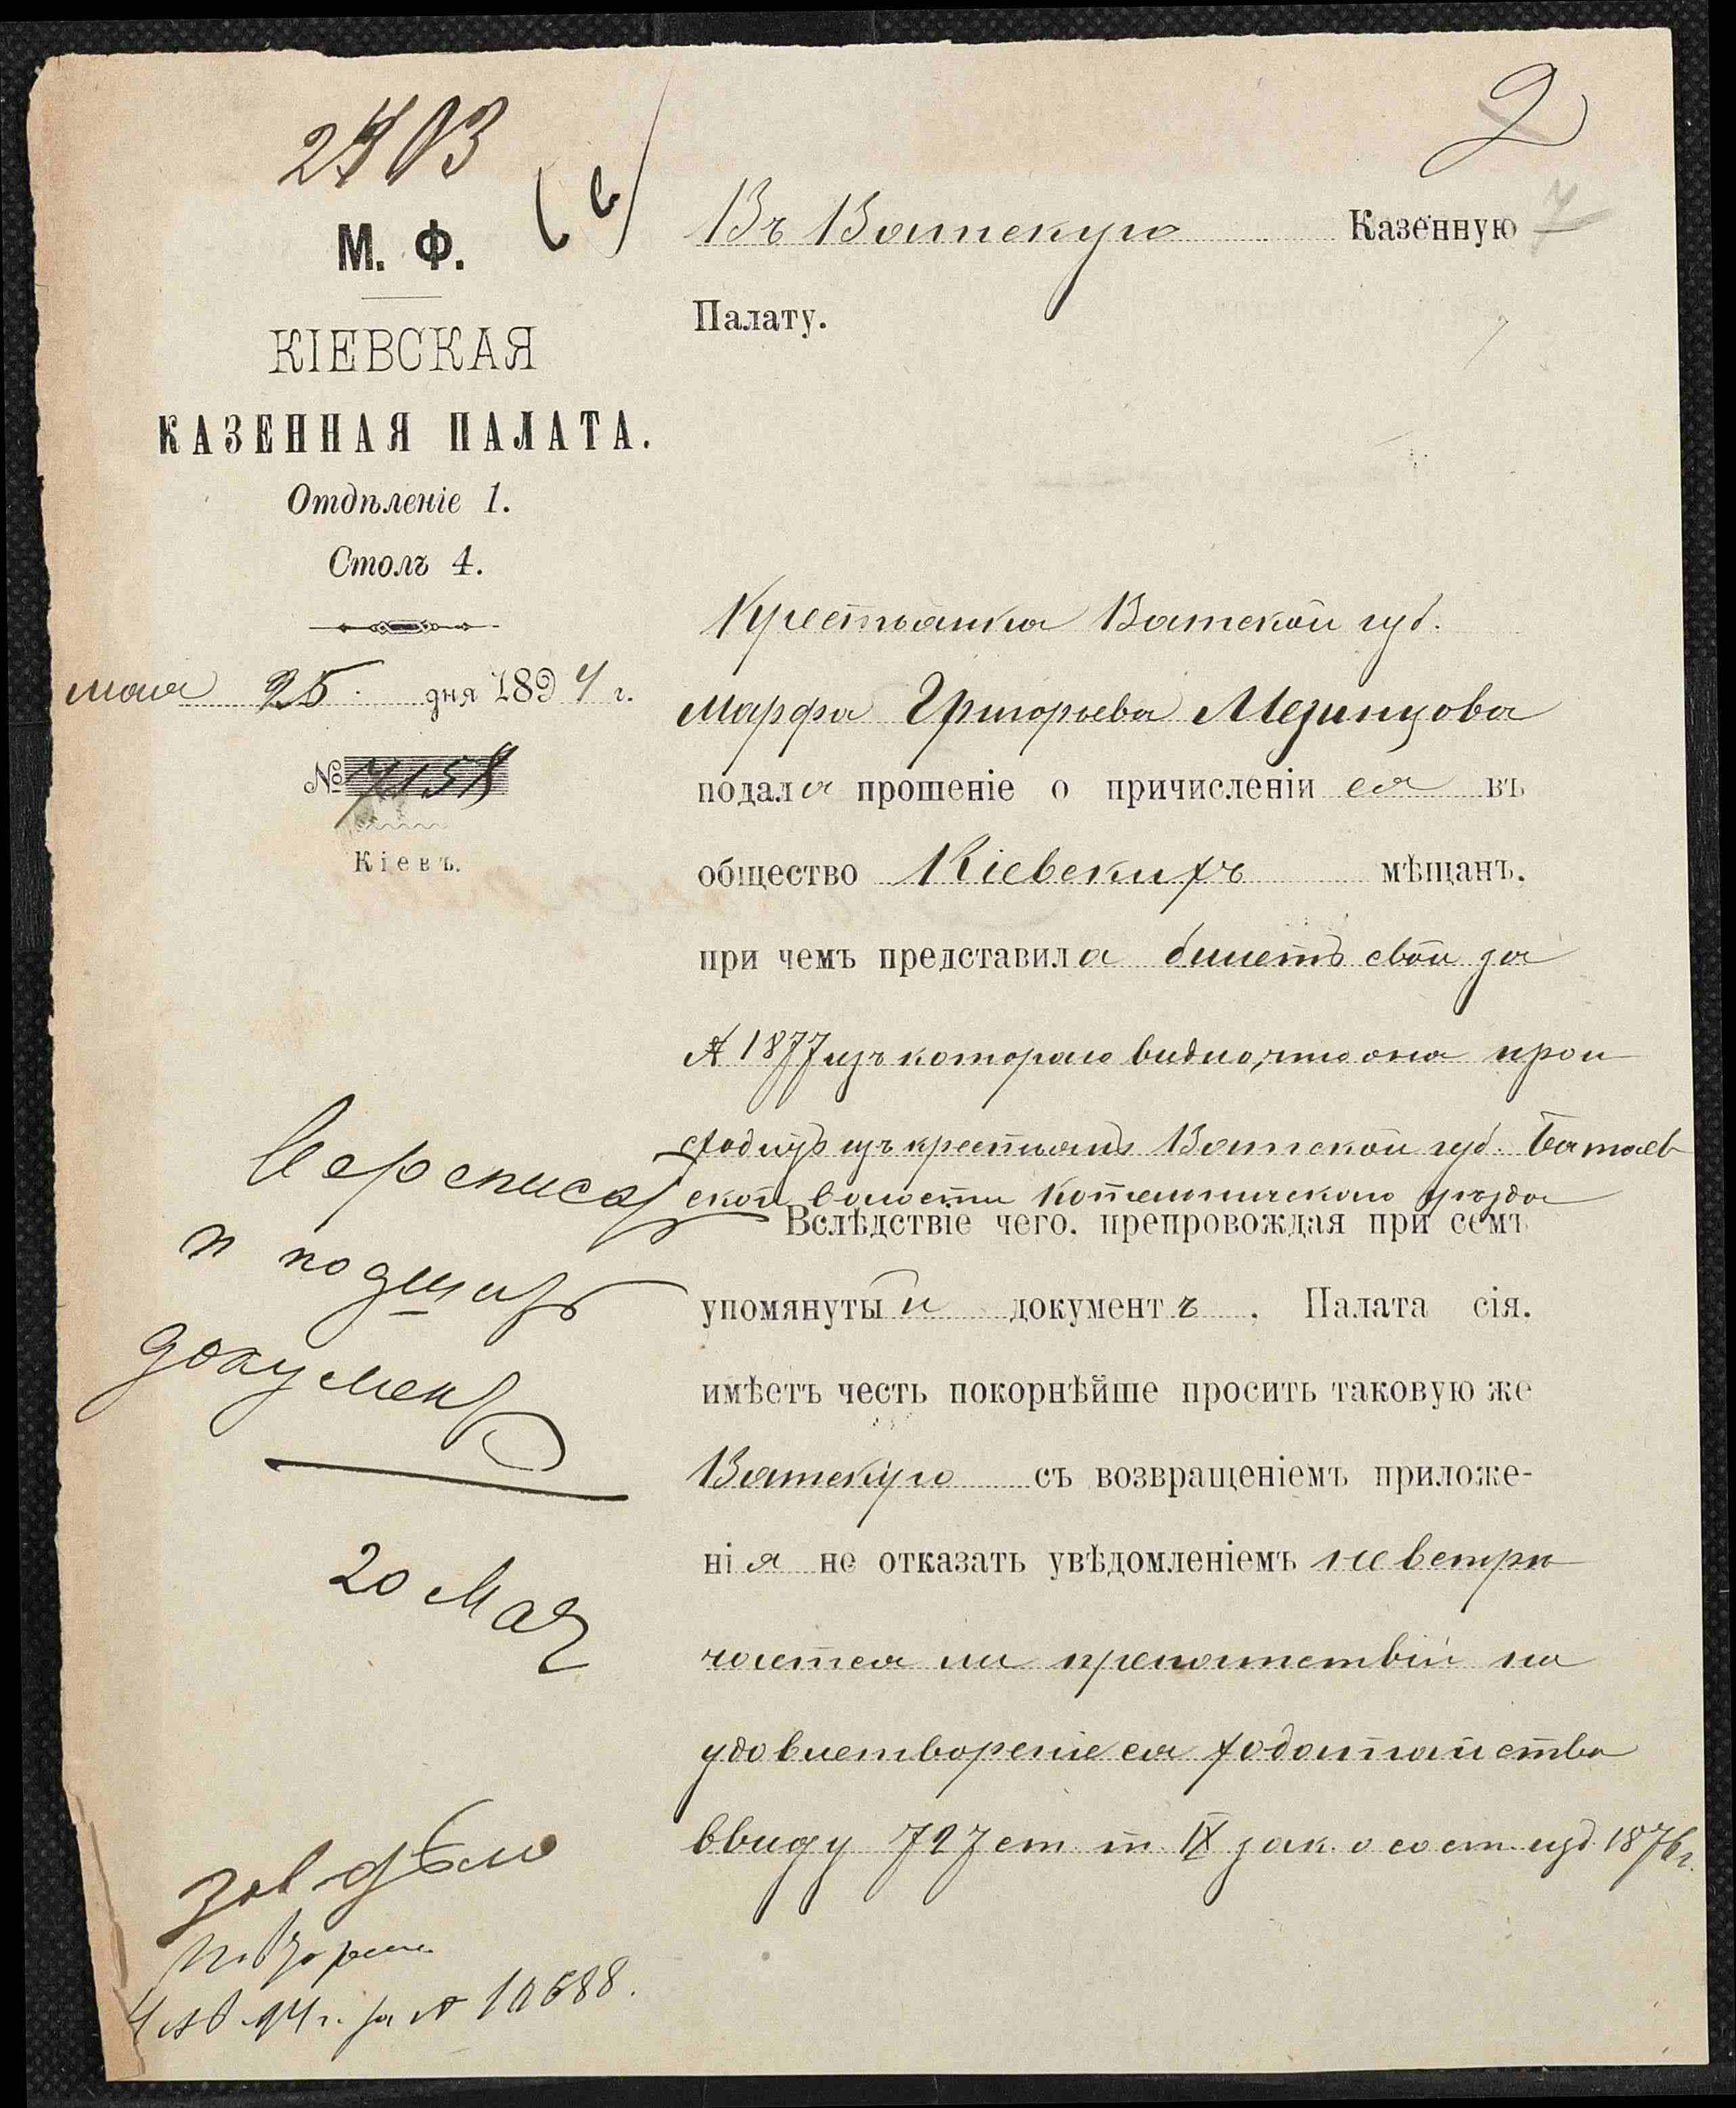 2
М. Ф.
КІЕВСКАЯ
КАЗЕННАЯ ПАЛАТА.
Отдѣленіе 1.
Столъ 4.
мая 25 дня 1894 г.
№ 7158
Кіевъ.
Въ Вятскую Казенную
Палату.
Крестьянка Вятской губ.
Марфа Григорьева Мезинцова
подала прошеніе о причисленіи ея въ
общество Кіевскихъ мѣщанъ.
при чемъ представила билетъ свой за
№ 1877 изъ котораго видно, что она прои
сходитъ изъ крестьянъ Вятской губ. Батаев
ской волости Котельническаго уѣзда
Вслѣдствіе чего, препровождая при семъ
упомянутый документъ. Палата сія.
имѣетъ честь покорнѣйше просить таковую же
Вятскую съ возвращеніемъ приложе-
нія не отказать увѣдомленіемъ не встрѣ
чается ли препятствій на
удовлетвореніе ея ходатайства
ввиду 727 ст. т. IX зак. о сост. изд. 1876 г.
документ
20 Мая
№ 10688.